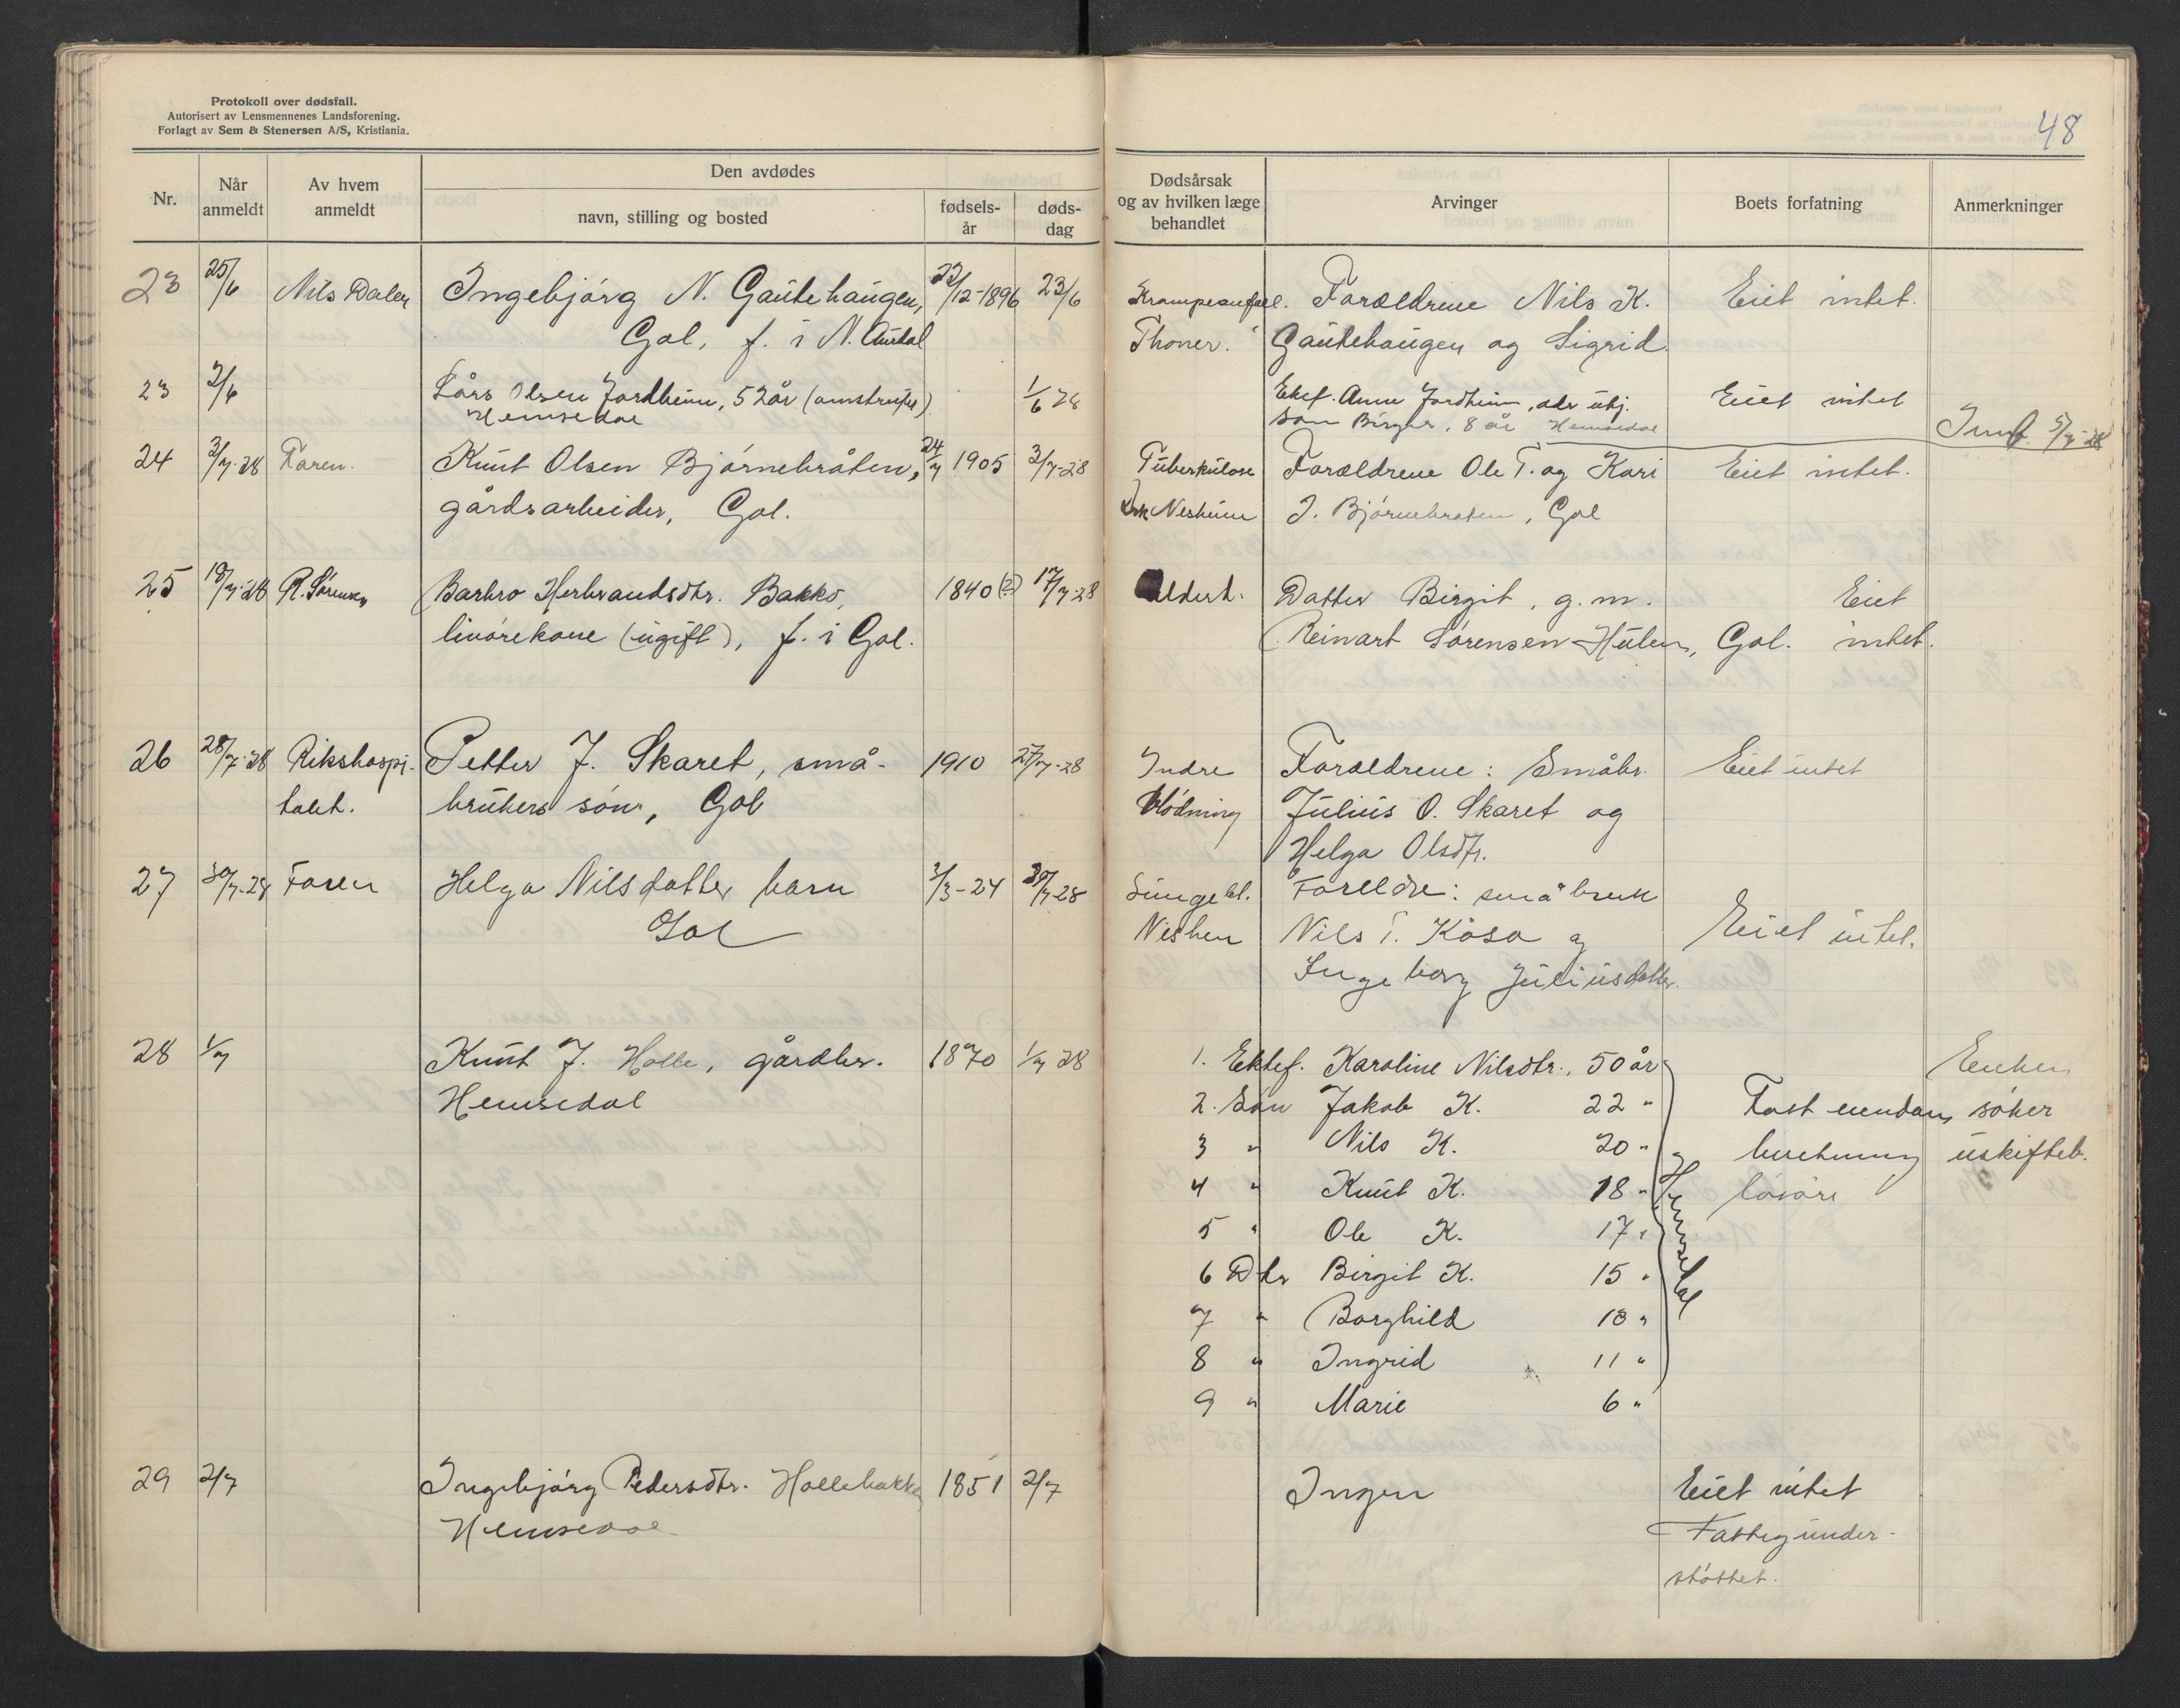 Protokoll over dødsfall.
Autorisert av Lensmennenes Landsforening.
Forlagt av Sem & Stenersen A/S, Kristiania.
48
Nr.
Når anmeldt
Av hvem anmeldt
Den avdødes
navn, stilling og bosted
fødsels-år
døds-dag
Dødsårsak og av hvilken læge behandlet
Arvinger
Boets forfatning
Anmerkninger
23 25/6 Nils Dalen Ingebjørg N. Gautehaugen, 22/12-1896 23/6 Krampeanfall. Forældrene Nils K. Eiet intet.
Gol, f. i N. Aurdal Thoner. Gautehaugen og Sigrid.
23 2/6 Lars Olsen Jordheim, 52 år 1/6 28 Ektf. Anne Jordheim, Eiet intet
Hemsedal son Birger, 8 år Hemsedal 5/7-28
24 3/7-28 Faren. Knut Olsen Bjørnebråten, 24/7 1905 3/7-28 Tuberkulose Forældrene Ole T. og Kari Eiet intet.
gårdsarbeider, Gol. Nesheim J. Bjørnebråten, Gol
25 18/7-28 R. Sørensen Barbro Herbrandsdtr. Bakko, 1840 (?) 17/7-28 Alderd. Datter Birgit, g.m. Eiet
livørekone (ugift), f. i Gol. Reinart Sørensen Hulen, Gol. intet.
26 28/7-28 Rikshospi- Petter J. Skaret, små- 1910 27/7-28 Indre Forældrene: Småbr. Eiet intet
talet. brukers søn, Gol blødning Julius O. Skaret og
Helga Olsdtr.
27 30/7-28 Faren Helga Nilsdatter barn 3/3-24 30/7-28 Lungebt. Foreldre: småbruk
Gol Nils T. Kåsa og Eiet intet.
Ingeborg Juliusdatter.
28 1/7 Knut J. Holle, gårdbr. 1870 1/7 28 1. Ektef. Karoline Nilsdtr., 50 år Enken
Hemsedal 2. Søn Jakob K. 22 " Fast eiendom søker
3 " Nils K. 20 " og besetning uskifteb.
4 " Knut K. 18 " løsøre
5 " Ole K. 17 "
6 Dtr Birgit K. 15 "
7 " Borghild 13 "
8 " Ingrid 11 "
9 " Marie 6 "
Hemsedal
29 2/7 Ingebjørg Pedersdtr. Hollebakken 1851 2/7 Ingen Eiet intet
Hemsedal Fattigunder-
støttet.